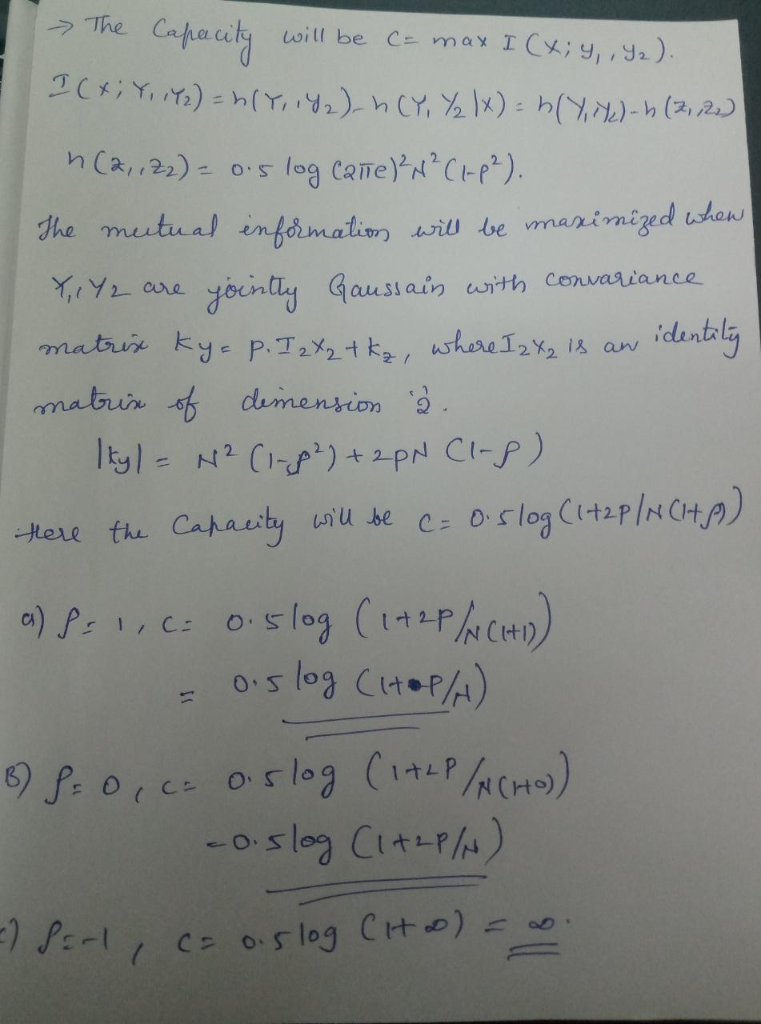 → The Capacity will be C= max I (X; y1, y2).
I(X; Y1, Y2) = h(Y1, Y2) - h(Y1 Y2 |X) = h(Y1, Y2) - h(Z1, Z2)
h(Z1, Z2) = 0.5 log (2πe)²N² (1-ρ²).
The mutual information will be maximized when
Y1, Y2 are jointly Gaussain with convariance
matrix Ky = P. I2X2 + Kz, where I2X2 is an identity
matrix of dimension '2.
|Ky| = N² (1-ρ²) + 2PN (1-ρ)
Here the Capacity will be C= 0.5 log (1+2P/N(1+ρ))
a) ρ= 1, C= 0.5 log (1+2P/N(1+1))
= 0.5 log (1+P/N)
B) ρ= 0, C= 0.5 log (1+2P/N(1+0))
= 0.5 log (1+2P/N)
c) ρ=-1, C= 0.5 log (1+∞) = ∞.